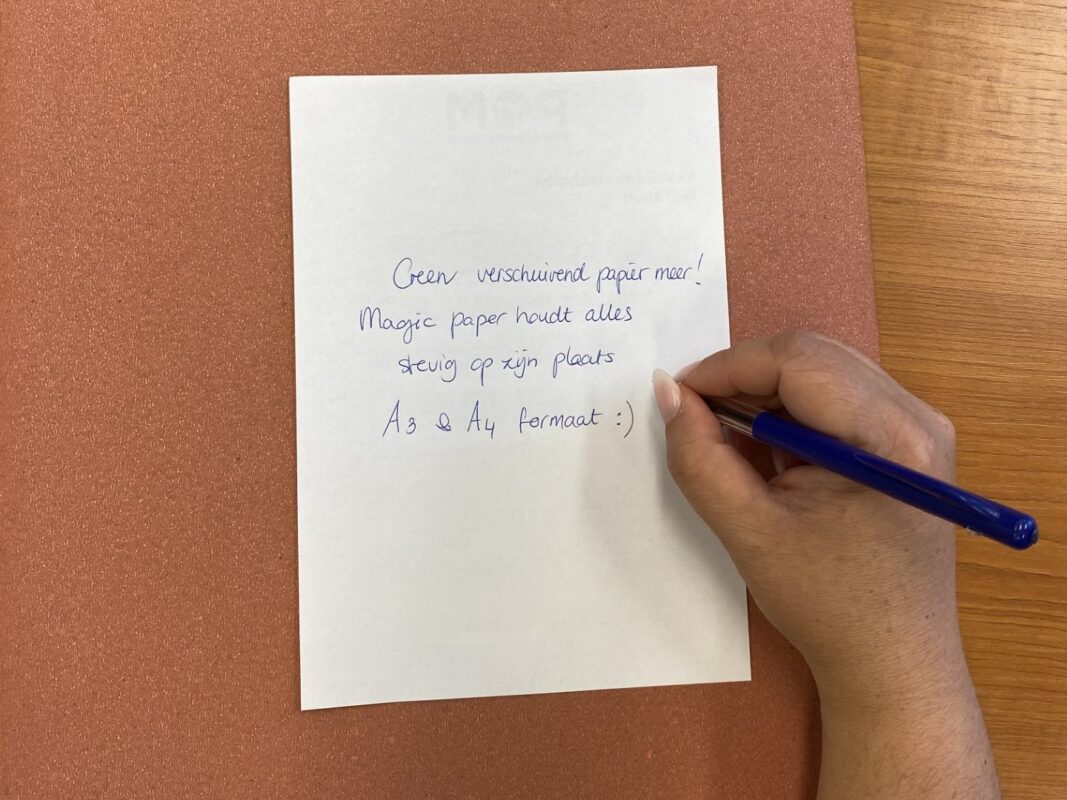 Geen verschuivend papier meer!
Magic paper houdt alles
stevig op zijn plaats
A3 & A4 formaat :)